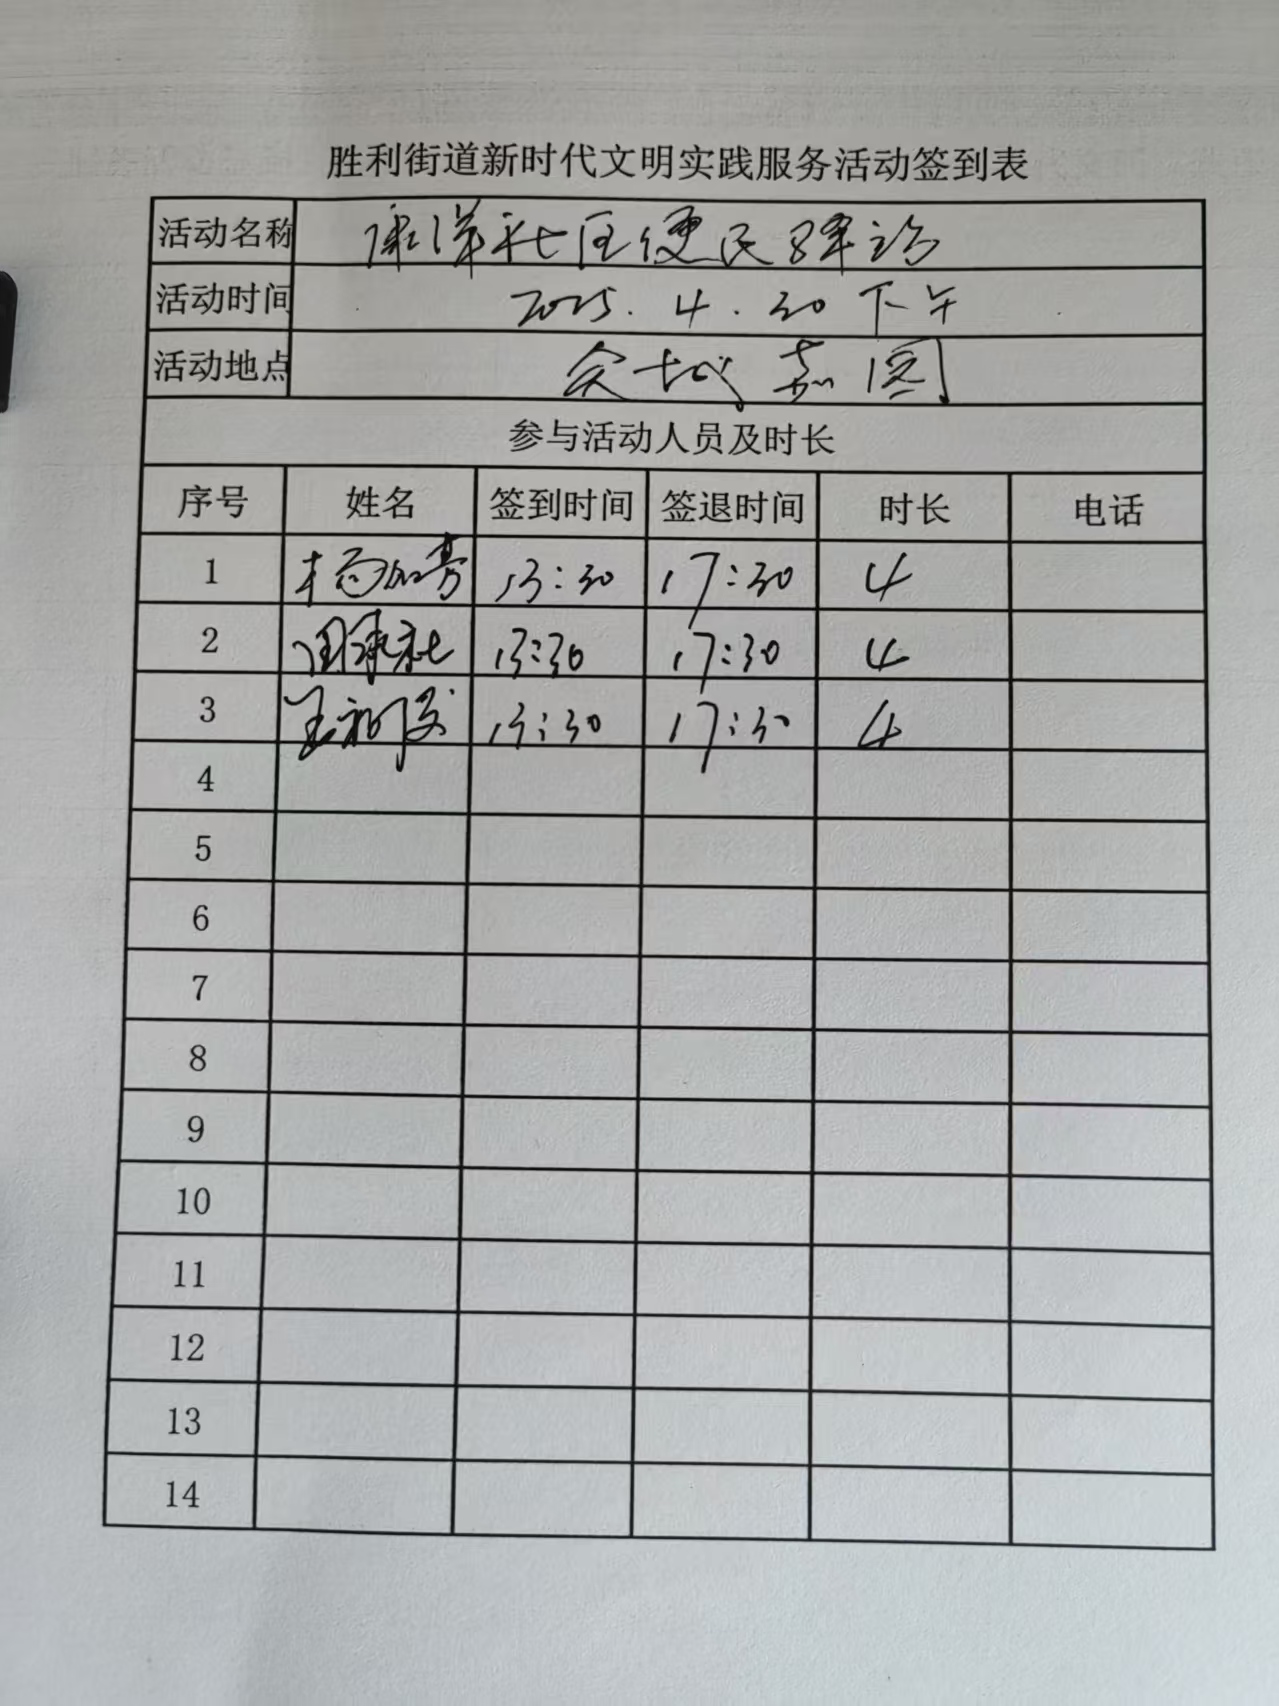 胜利街道新时代文明实践服务活动签到表
活动名称 康洋社区便民
活动时间 2025.4.30下午
活动地点 嘉园
参与活动人员及时长
序号 姓名 签到时间 签退时间 时长 电话
1 13:30 17:30 4
2 13:30 17:30 4
3 13:30 17:30 4
4
5
6
7
8
9
10
11
12
13
14